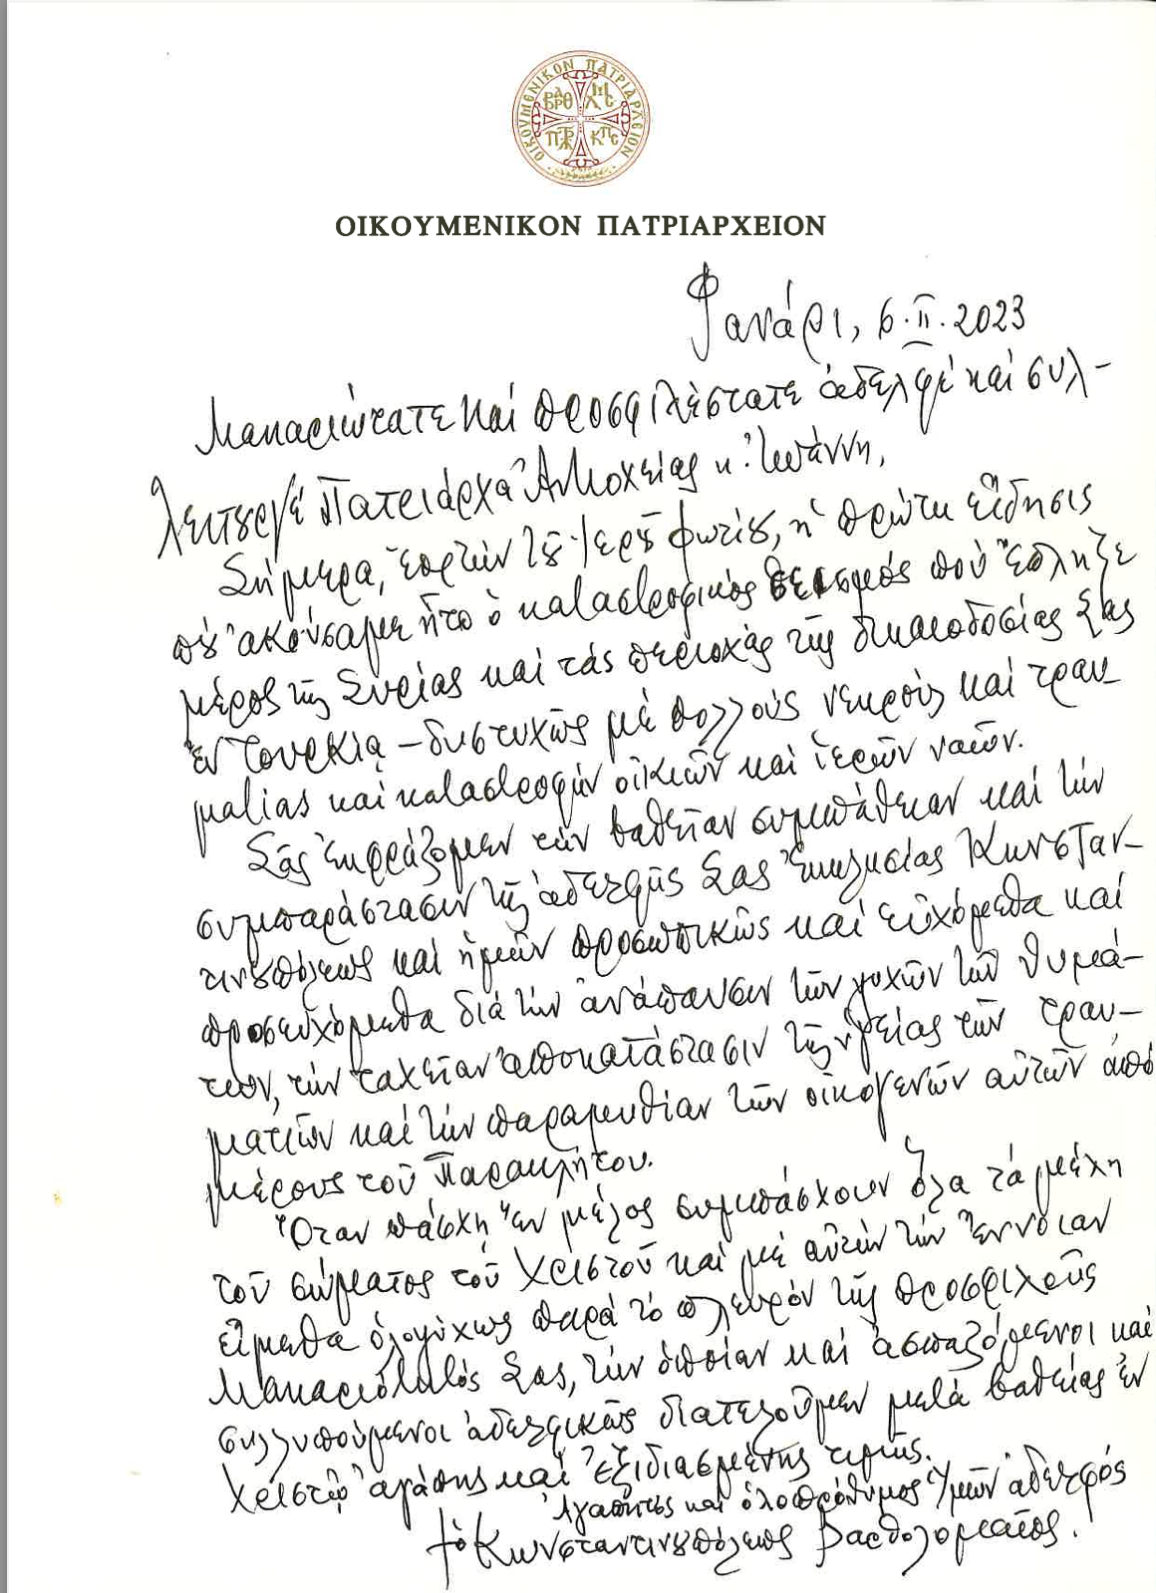 ΟΙΚΟΥΜΕΝΙΚΟΝ ΠΑΤΡΙΑΡΧΕΙΟΝ
ΒΑΡΘ ΛΜΣ
ΠΤΡΧ ΚΠΣ
ΟΙΚΟΥΜΕΝΙΚΟΝ ΠΑΤΡΙΑΡΧΕΙΟΝ
Φανάρι, 6.ΙΙ.2023
Μακαριώτατε καί προσφιλέστατε ἀδελφέ καί συλ-
λειτουργέ Πατριάρχα Ἀντιοχείας κ. Ἰωάννη,
Σήμερα, ἑορτήν τοῦ Ἱεροῦ Φωτίου, ἡ πρώτη εἴδησις
πού ἀκούσαμε ἦτο ὁ καταστροφικός σεισμός πού ἔπληξε
μέρος τῆς Συρίας καί τάς περιοχάς τῆς δικαιοδοσίας Σας
ἐν Τουρκίᾳ – δυστυχῶς μέ πολλούς νεκρούς καί τραυ-
ματίας καί καταστροφήν οἰκιῶν καί ἱερῶν ναῶν.
Σᾶς ἐκφράζομεν τήν βαθεῖαν συμπάθειαν καί τήν
συμπαράστασιν τῆς ἀδελφῆς Σας Ἐκκλησίας Κωνσταν-
τινουπόλεως καί ἡμῶν προσωπικῶς καί εὐχόμεθα καί
προσευχόμεθα διά τήν ἀνάπαυσιν τῶν ψυχῶν τῶν θυμά-
των, τήν ταχεῖαν ἀποκατάστασιν τῆς ὑγείας τῶν τραυ-
ματιῶν καί τήν παραμυθίαν τῶν οἰκογενῶν αὐτῶν ἀπό
μέρους τοῦ Παρακλήτου.
Ὅταν πάσχῃ ἕν μέλος συμπάσχουν ὅλα τά μέλη
τοῦ σώματος τοῦ Χριστοῦ καί μέ αὐτήν τήν ἔννοιαν
εἴμεθα ὁλοψύχως παρά τό πλευρόν τῆς προσφιλοῦς
Μακαριότητός Σας, τήν ὁποίαν καί ἀσπαζόμενοι καί
συλλυπούμενοι ἀδελφικῶς διατελοῦμεν μετά βαθείας ἐν
Χριστῷ ἀγάπης καί ἐξιδιασμένης τιμῆς.
Ἀγαπητός καί ὁλοπρόθυμος Ὑμῶν ἀδελφός
† ὁ Κωνσταντινουπόλεως Βαρθολομαῖος.